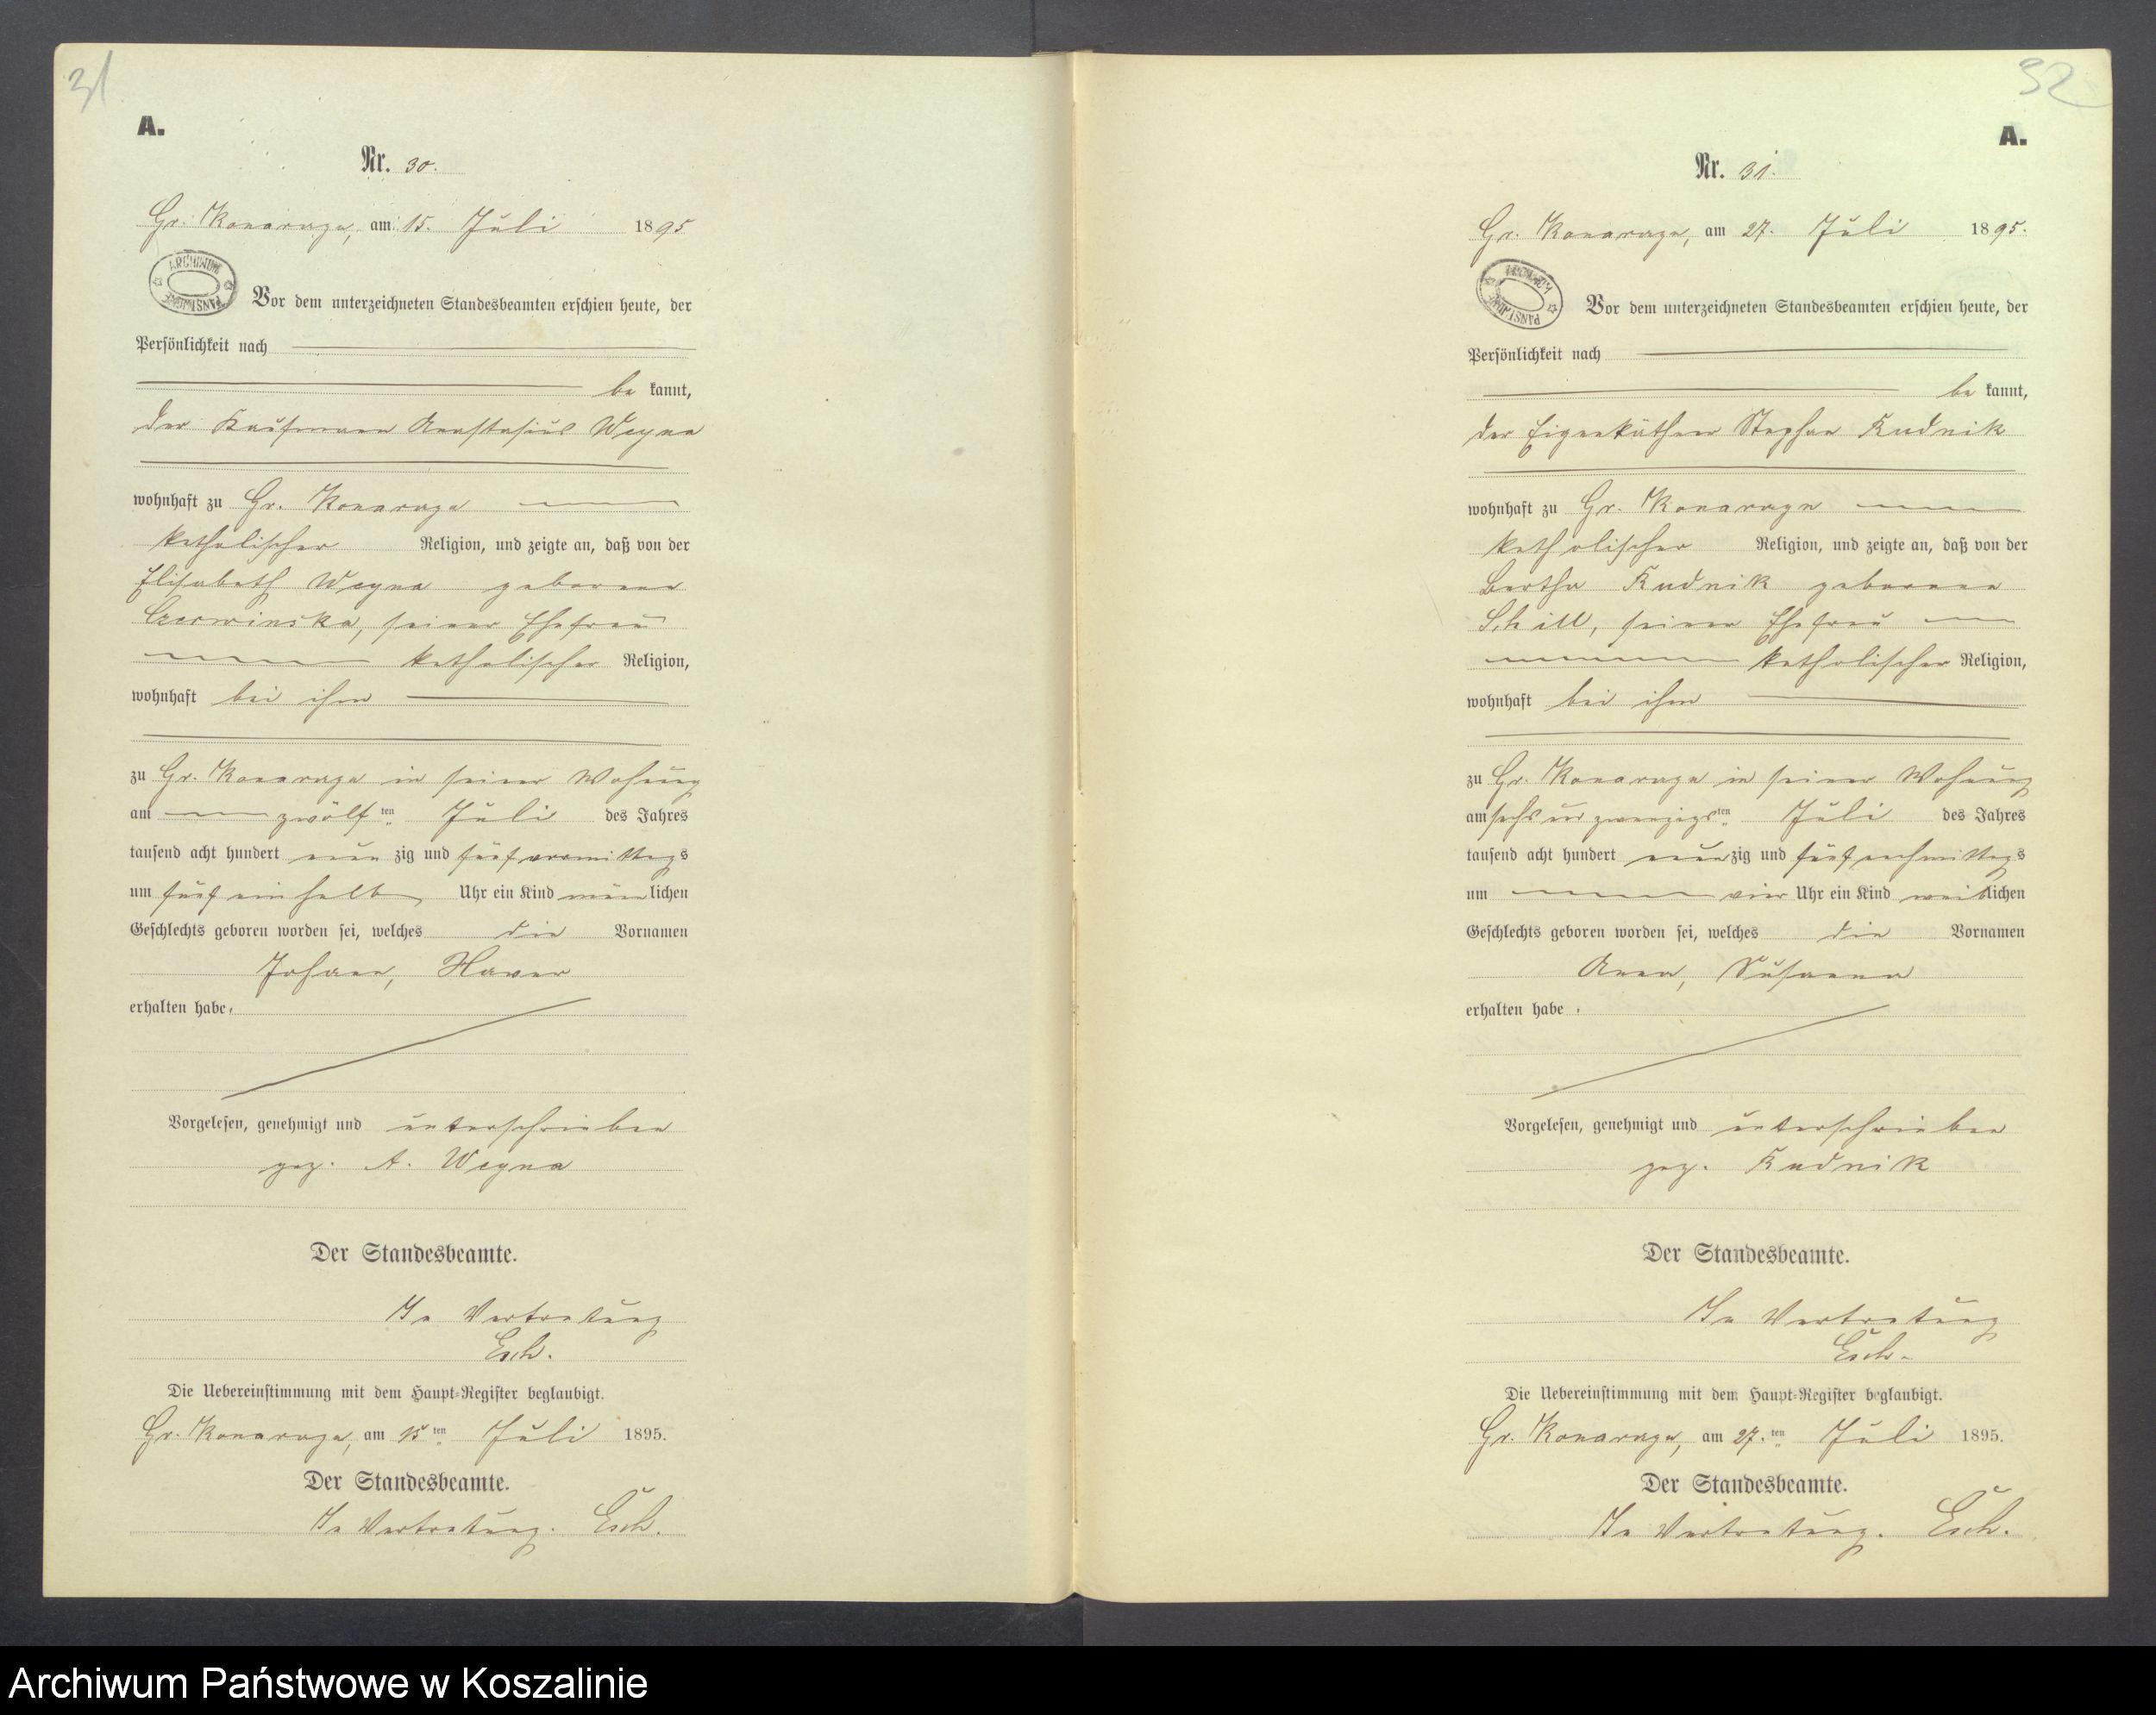 31
A.
Nr. 30.
Gr. Konarczyn, am 15. Juli 1895
ARCHIWUM PAŃSTWOWE
Vor dem unterzeichneten Standesbeamten erschien heute, der
Persönlichkeit nach
be kannt,
der Kaufmann Anastasius Weyna
wohnhaft zu Gr. Konarczyn
katholischer Religion, und zeigte an, daß von der
Elisabeth Weyna geborene
Czerwinska, seiner Ehefrau
katholischer Religion,
wohnhaft bei ihm
zu Gr. Konarczyn in seiner Wohnung
am zwölf ten Juli des Jahres
tausend acht hundert neun zig und fünf vormittags
um fünf ein halb Uhr ein Kind männ lichen
Geschlechts geboren worden sei, welches die Vornamen
Johann, Xaver
erhalten habe.
Vorgelesen, genehmigt und unterschrieben
gez. A. Weyna
Der Standesbeamte.
In Vertretung
Esch.
Die Uebereinstimmung mit dem Haupt-Register beglaubigt.
Gr. Konarczyn, am 15ten Juli 1895.
Der Standesbeamte.
In Vertretung. Esch.
32
A.
Nr. 31.
Gr. Konarczyn, am 27. Juli 1895.
ARCHIWUM PAŃSTWOWE
Vor dem unterzeichneten Standesbeamten erschien heute, der
Persönlichkeit nach
be kannt,
der Eigenkäthner Stephan Rudnik
wohnhaft zu Gr. Konarczyn
katholischer Religion, und zeigte an, daß von der
Bertha Rudnik geborene
Schill, seiner Ehefrau
katholischer Religion,
wohnhaft bei ihm
zu Gr. Konarczyn in seiner Wohnung
am sechs und zwanzigsten Juli des Jahres
tausend acht hundert neun zig und fünf nachmittags
um vier Uhr ein Kind weib lichen
Geschlechts geboren worden sei, welches die Vornamen
Anna, Susanna
erhalten habe.
Vorgelesen, genehmigt und unterschrieben
gez. Rudnik
Der Standesbeamte.
In Vertretung
Esch.
Die Uebereinstimmung mit dem Haupt-Register beglaubigt.
Gr. Konarczyn, am 27.ten Juli 1895.
Der Standesbeamte.
In Vertretung. Esch.
Archiwum Państwowe w Koszalinie